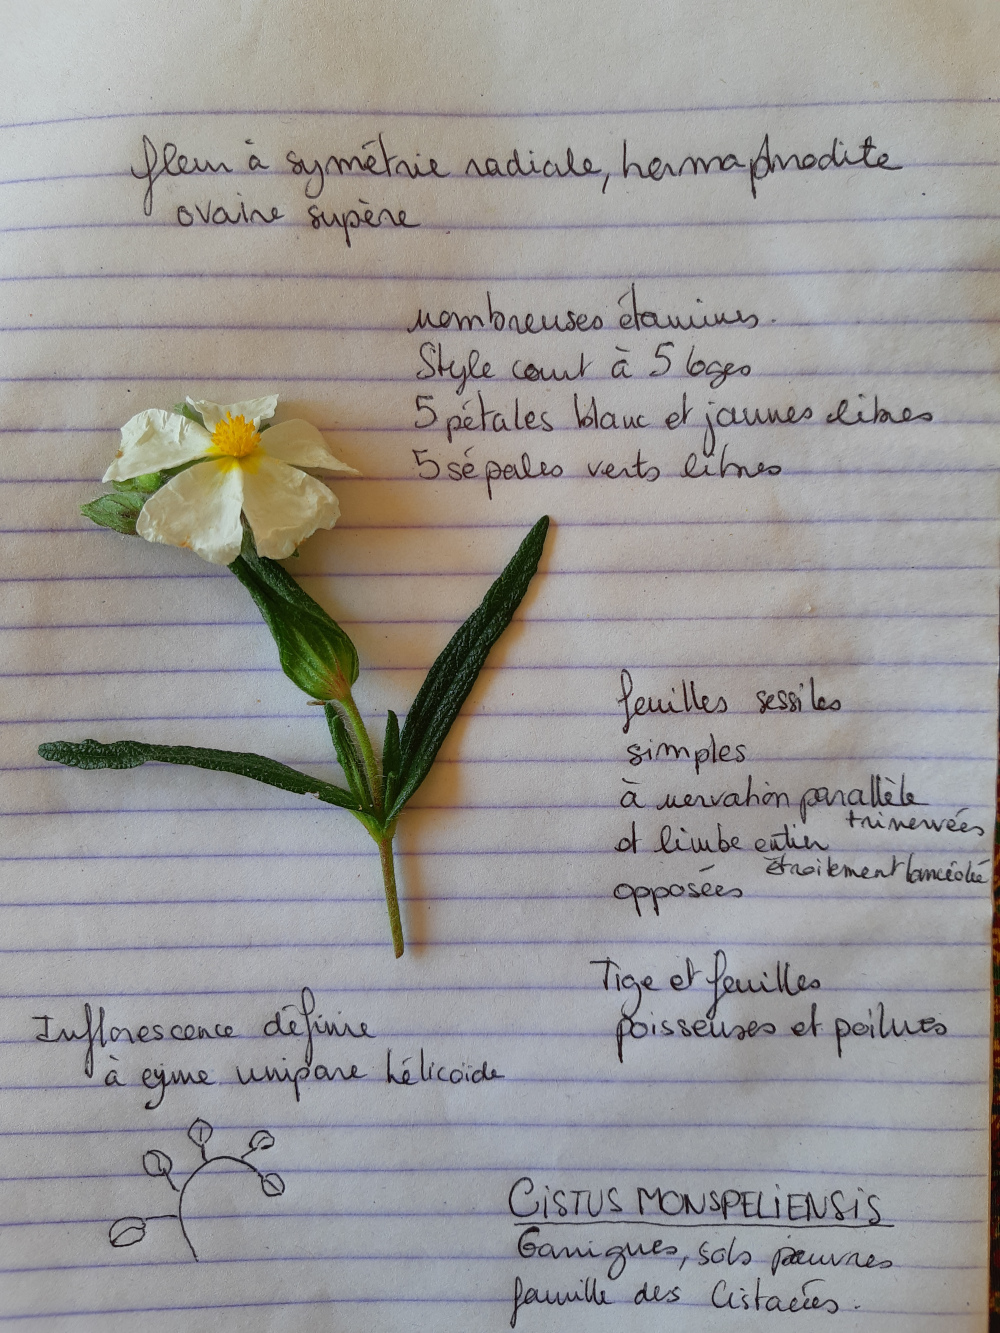 fleur à symétrie radiale, hermaphrodite
ovaire supère
nombreuses étamines.
Style court à 5 loges
5 pétales blanc et jaunes libres
5 sépales verts libres
feuilles sessiles
simples
à nervation parallèle
trinervées
et limbe entier
étroitement lancéolé
opposées
Tige et feuilles
poisseuses et poilues
Inflorescence définie
à cyme unipare hélicoïde
CISTUS MONSPELIENSIS
Garrigues, sols pauvres
famille des Cistacées.